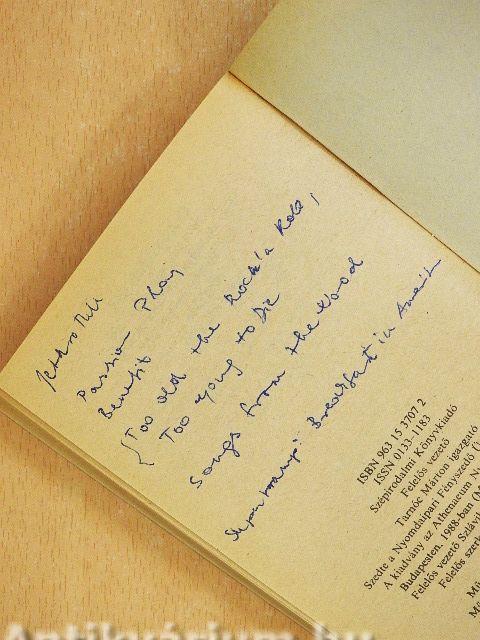 Jethro Tull
Passion Play
Benefit
{Too old the Rock'n Roll,
Too young to die
Songs from the Wood
Supertramp: Breakfast in
ISBN 963 15 3707 2
ISSN 0133-1183
Szépirodalmi Könyvkiadó
Felelős vezető
Tarnóc Márton igazgató
Szedte a Nyomdaipari Fényszedő (
A kiadvány az Athenaeum N
Budapesten, 1988-ban (M
Felelős vezető Szlávi
Felelős szerk
Mű
Antikvárium.hu